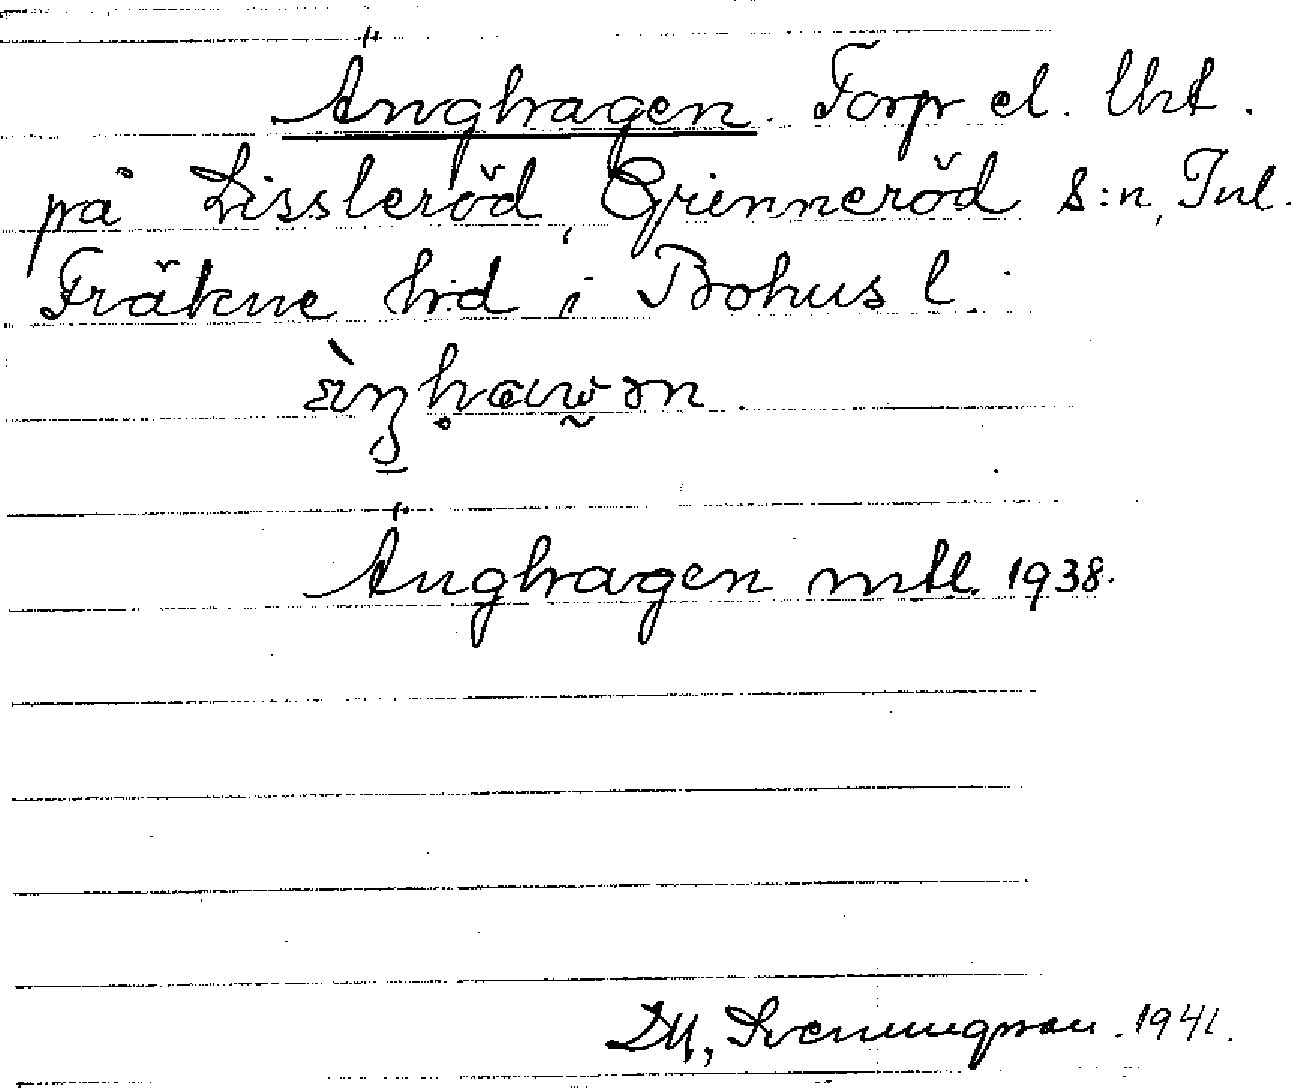 Änghagen. Torp el. lht.
på Lissleröd, Grinneröd s:n, Inl.
Fräkne hd i Bohus l.
Änghagen mtl. 1938.
Svenungsson. 1941.